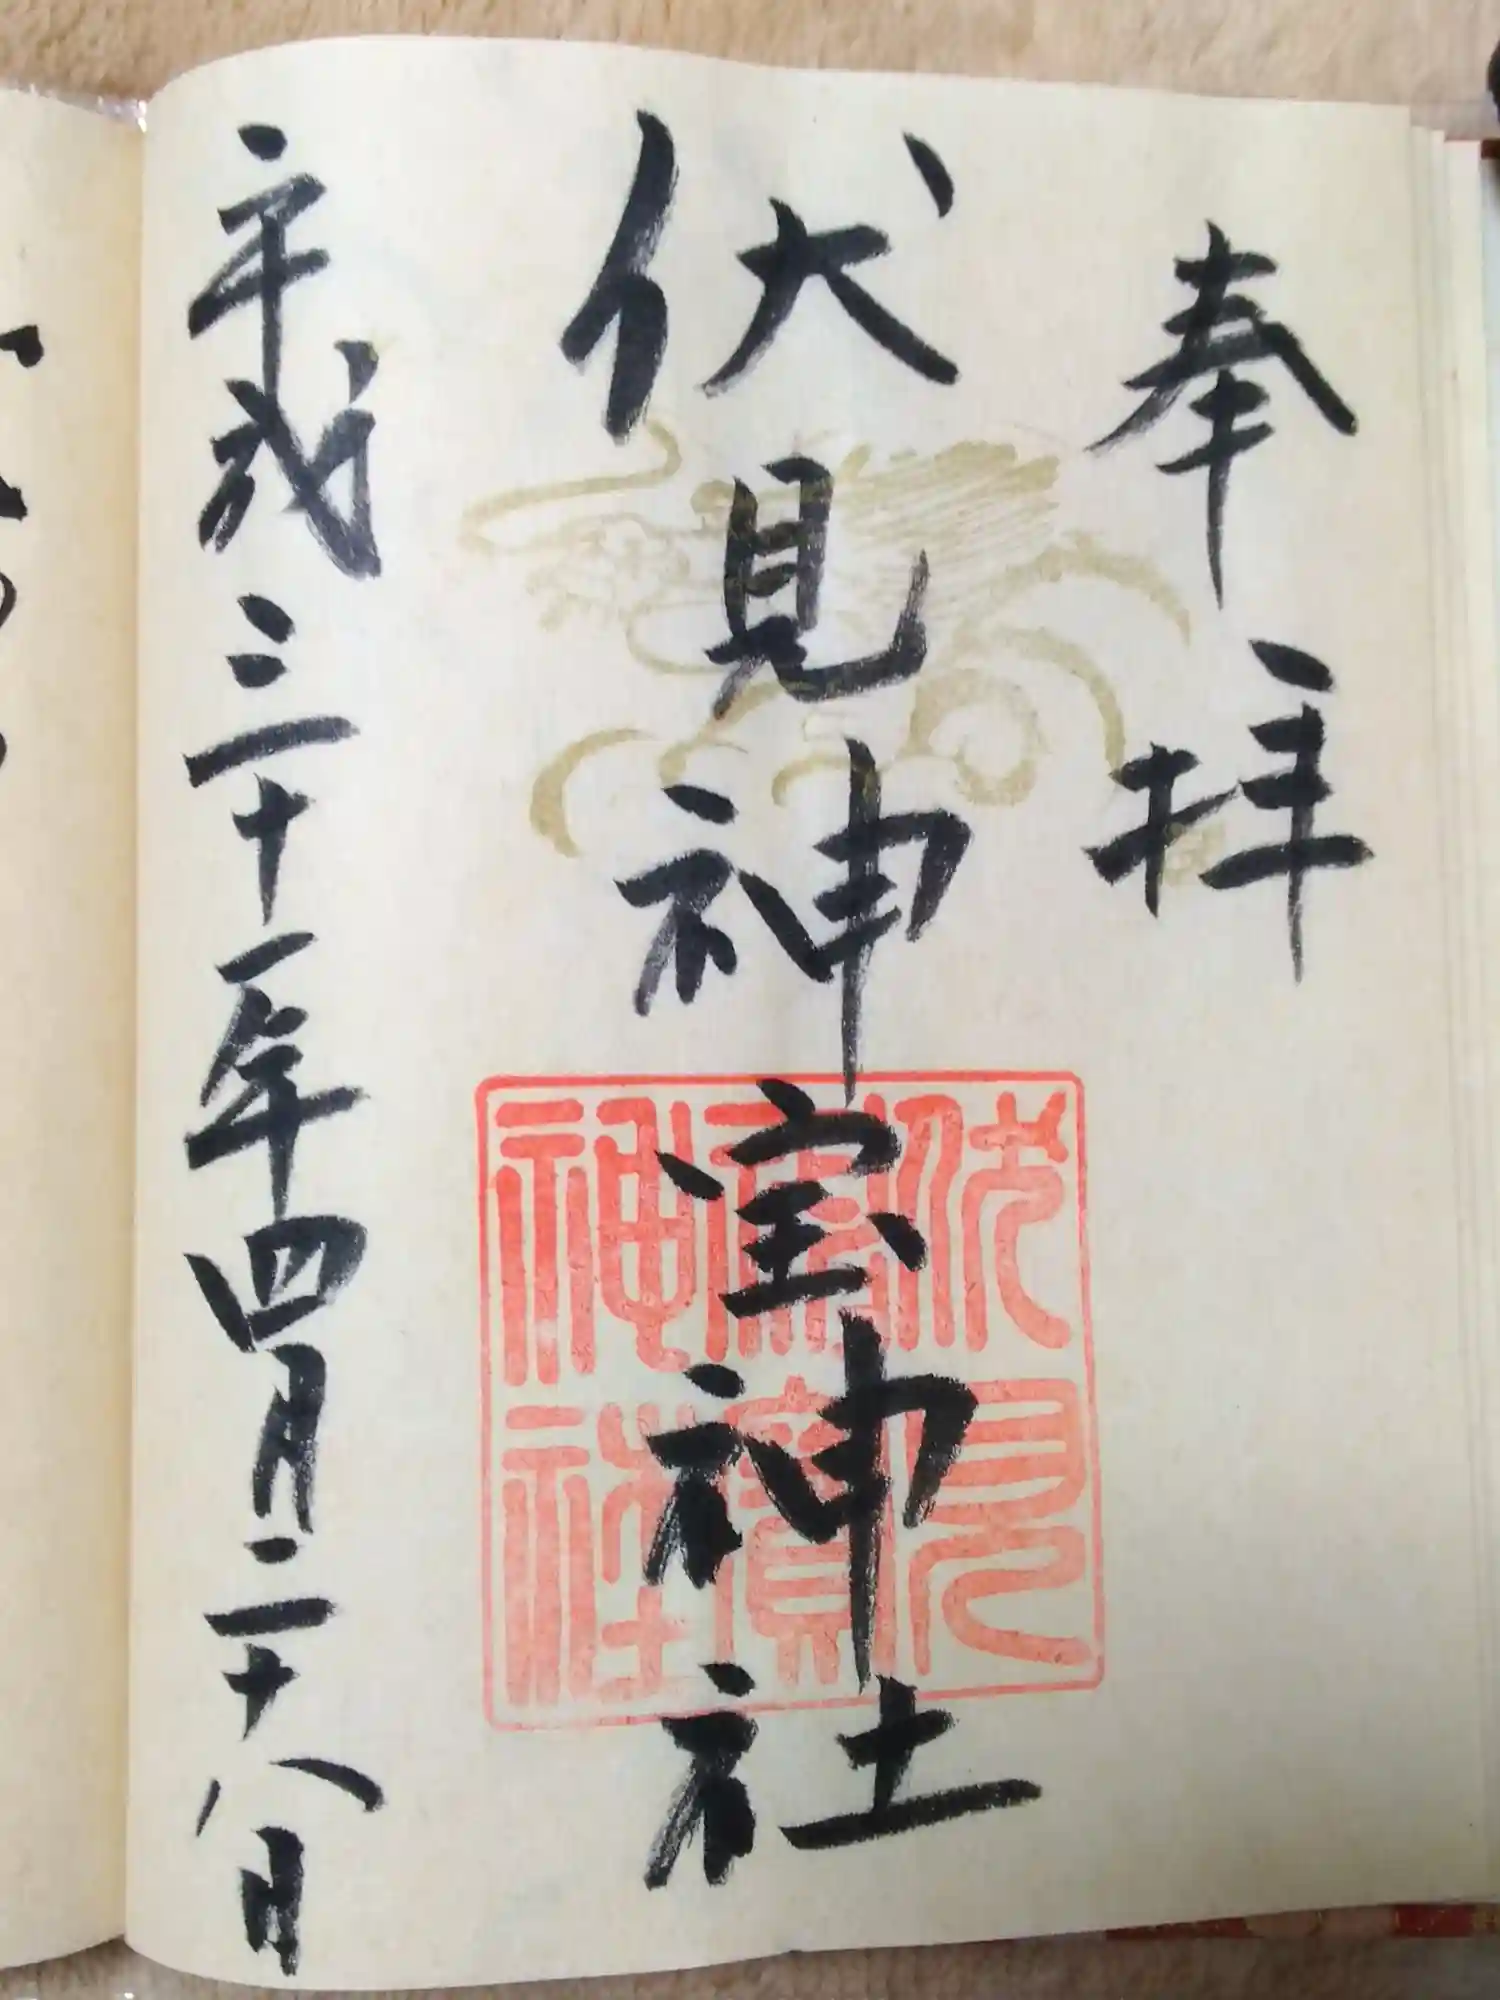 奉拝
伏見神宝神社
平成三十一年四月二十八日
伏見
神寳
神社